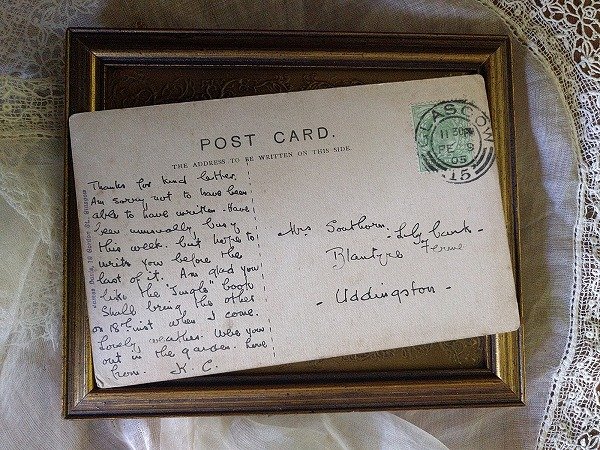 POST CARD.
THE ADDRESS TO BE WRITTEN ON THIS SIDE
GLASGOW
11 30PM
FE 9
05
15
Thanks for kind letter.
Am sorry not to have been
able to have written. Have
been unusually busy
this week. but hope to
write you before the
last of it. Am glad you
like the "Jungle" book
Shall bring the other
on 18th inst when I come.
Lovely weather. Were you
out in the garden. Love
from. K. C.
Mrs Southorn. Lily bank -
Blantyre Ferme
- Uddingston -